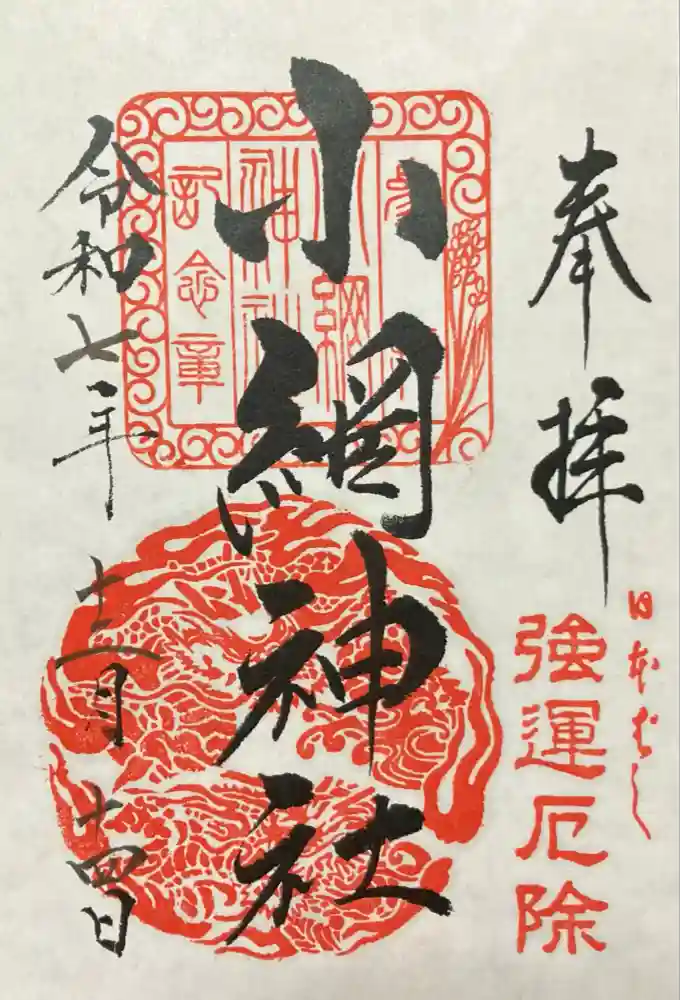 奉拝
日本ばし
強運厄除
小網神社
小網
神社
記念章
令和七年
十二月
十四日